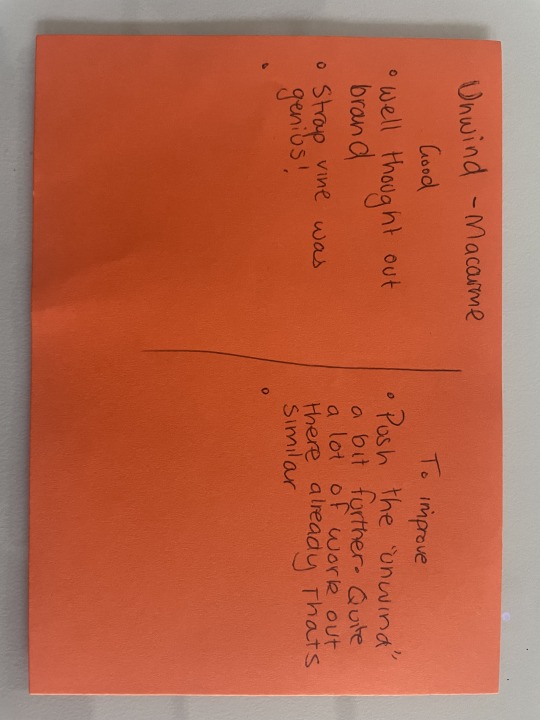 Unwind - Macarme
Good
• Well thought out
brand
• Strap vine was
genius!
•
To improve
• Push the "unwind"
a bit further. Quite
a lot of work out
there already thats
similar
•